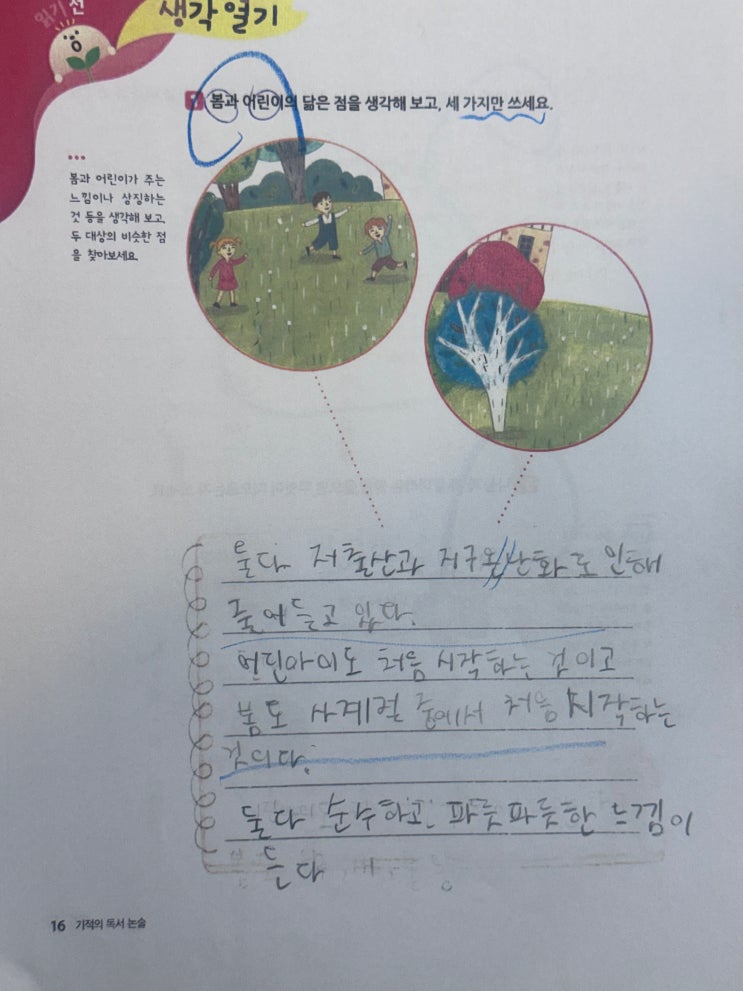 읽기 전
생각 열기
1 봄과 어린이의 닮은 점을 생각해 보고, 세 가지만 쓰세요.
봄과 어린이가 주는
느낌이나 상징하는
것 등을 생각해 보고,
두 대상의 비슷한 점
을 찾아보세요.
둘다 저출산과 지구온난화로 인해
줄어 들고 있다.
어린아이도 처음 시작하는 것이고
봄도 사계절 중에서 처음 시작하는
것이다.
둘다 순수하고 파릇파릇한 느낌이
든다
16 기적의 독서 논술